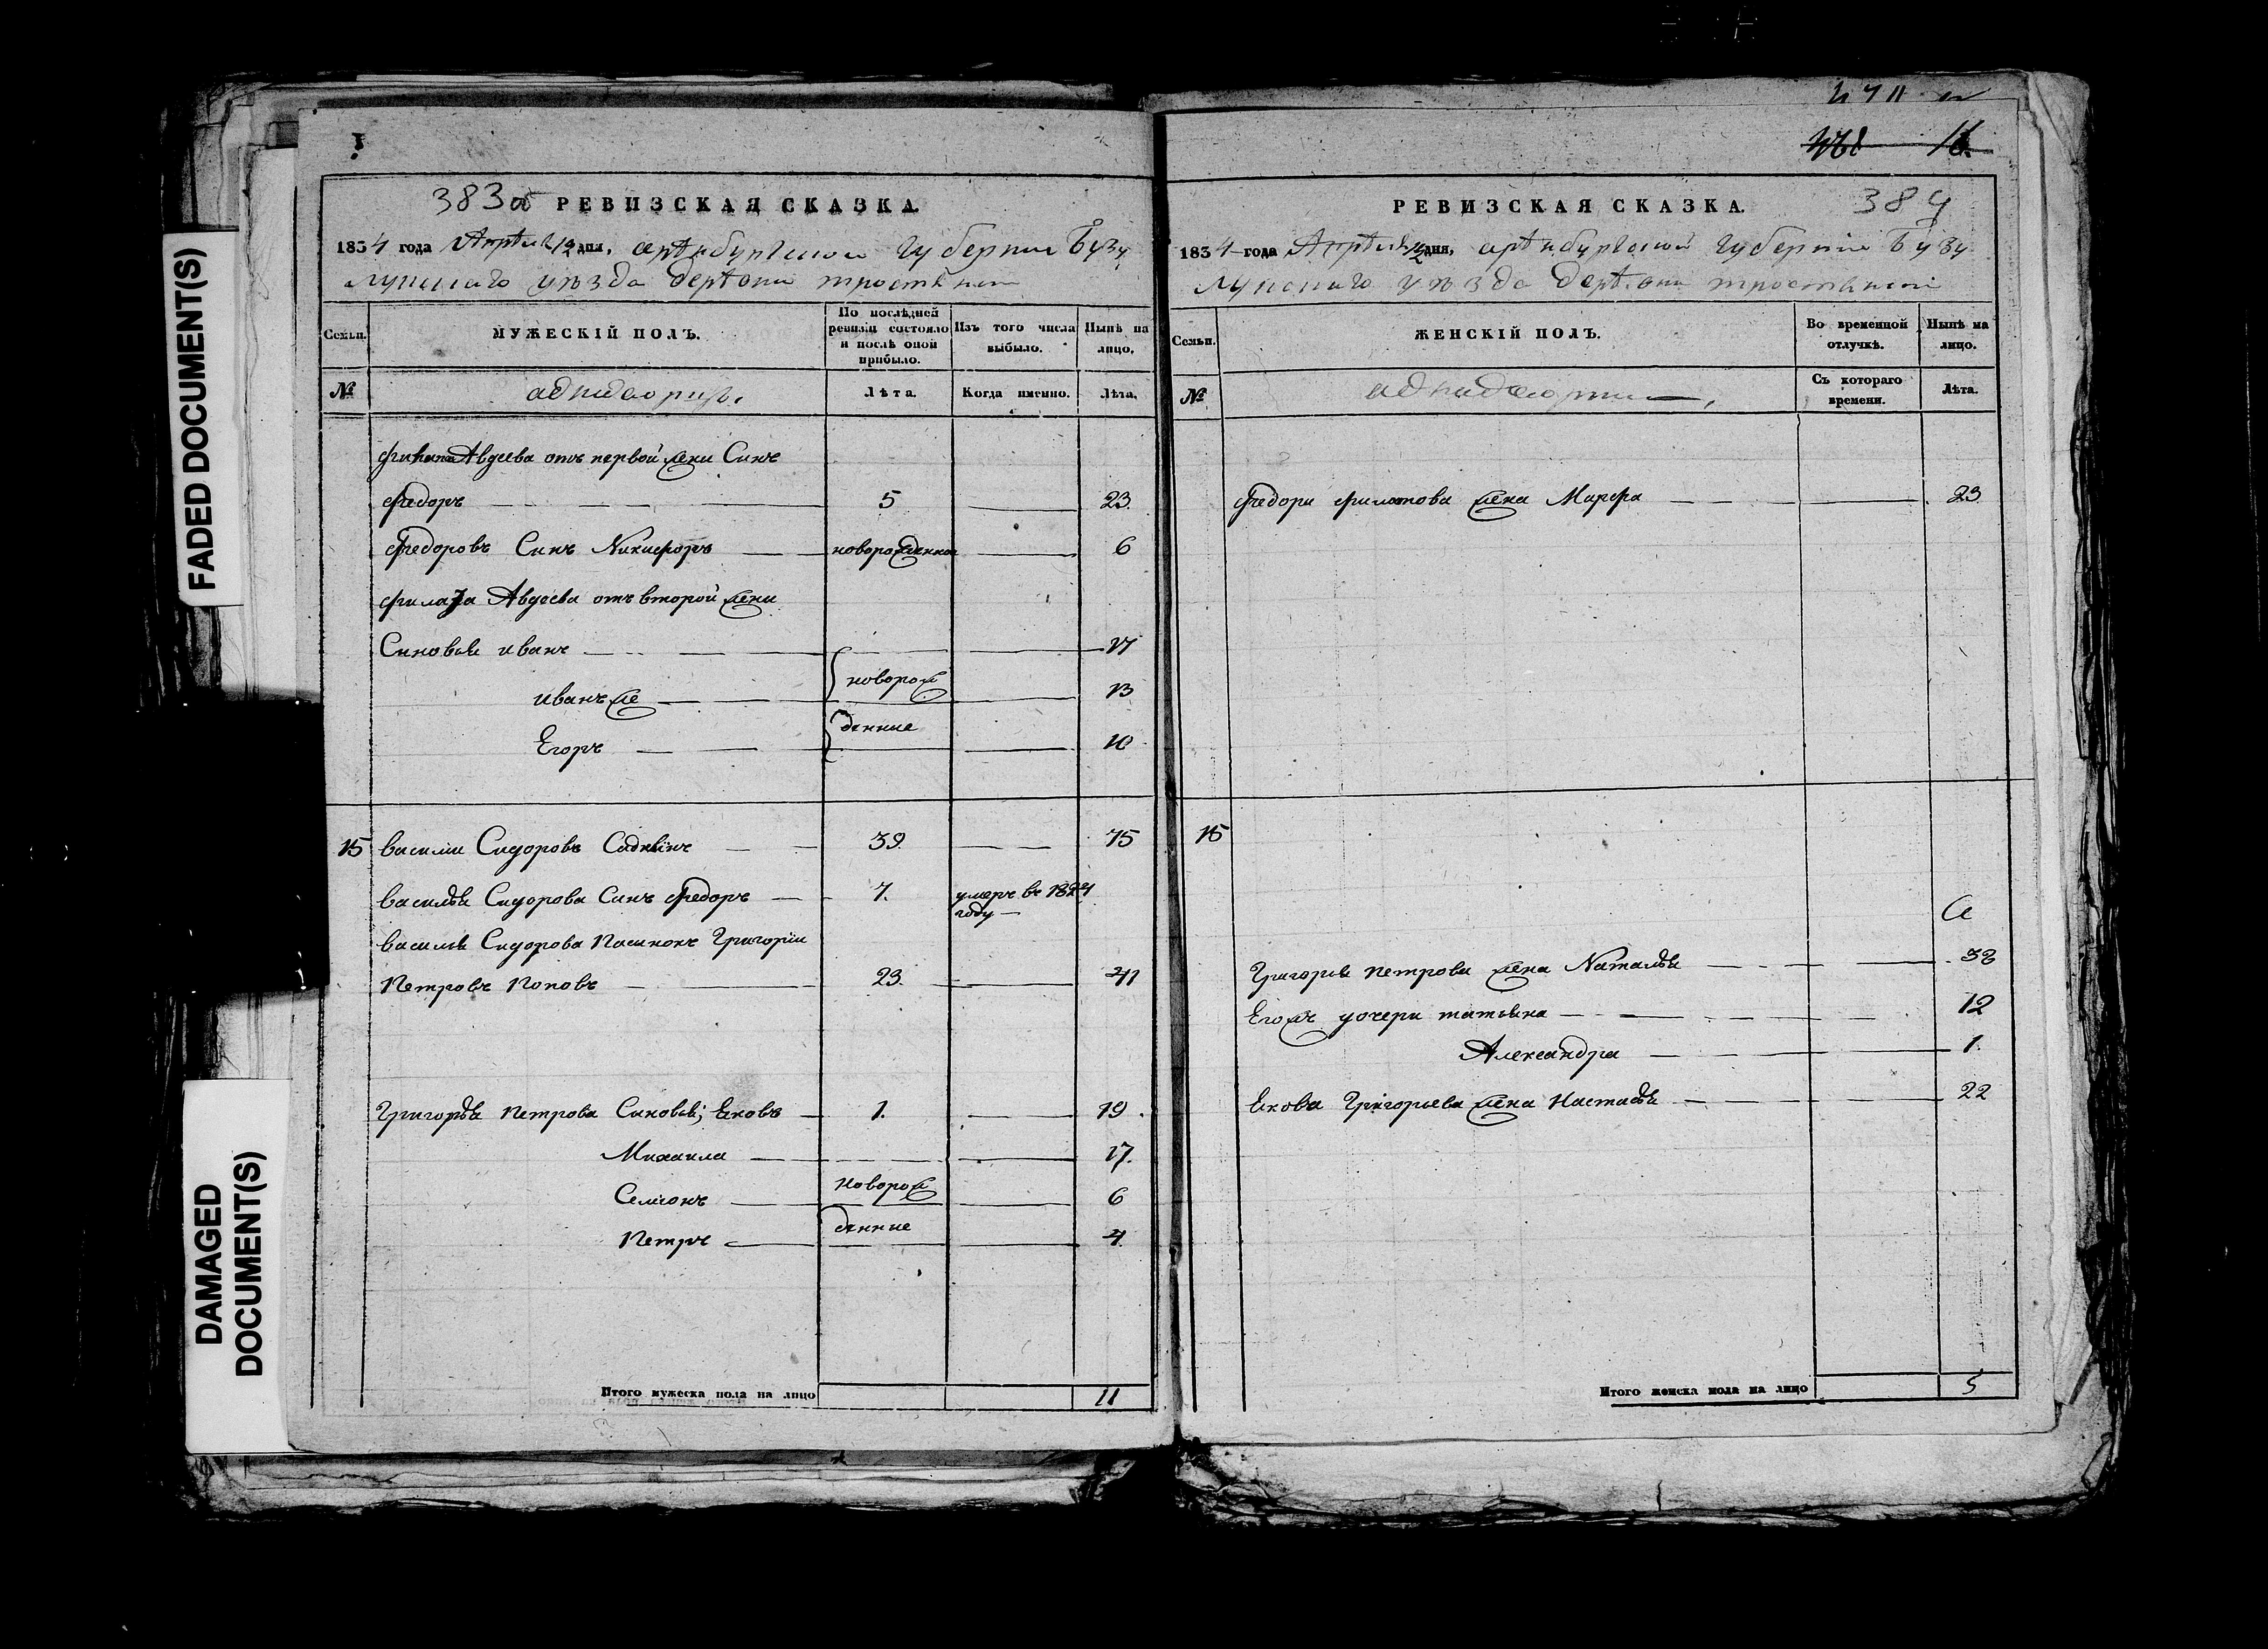 FADED DOCUMENT(S)
DAMAGED
DOCUMENT(S)
383об РЕВИЗСКАЯ СКАЗКА.
1834 года Апреля 12 дня, оренбургской губернии Бузу
лукскаго уезда деревни тростянки
Семьи. МУЖЕСКІЙ ПОЛЪ. По послѣдней ревизіи состояло и послѣ оной прибыло. Изъ того числа выбыло. Нынѣ на лицо.
№ Лѣта. Когда именно. Лѣта.
Авдеева отъ первой жены Сынъ
Федоръ 5 23.
Федоровъ Сынъ Никифоръ новорожденной 6
Авдеева отъ второй жены
Сыновья иванъ 17
иванъ же новорож 13
Егоръ денные 10
15 василии Сидоровъ 39. 75
василья Сидорова Сынъ Федоръ 7. умеръ въ 1824
году
василья Сидорова Пасынокъ Григории
Петровъ Поповъ 23. 41
Григорья Петрова Сыновья; Яковъ 1. 19.
Михаила 17.
Семионъ новорож 6
Петръ денные 4
Итого мужеска пола на лицо 11
471
16.
РЕВИЗСКАЯ СКАЗКА. 384
1834 года Апреля 12 дня, оренбургской губерніи Бузу
лукскаго уезда деревни тростянки
Семьи. ЖЕНСКІЙ ПОЛЪ. Во временной отлучкѣ. Нынѣ на лицо.
№ Съ котораго времени. Лѣта.
Федора филатова жена Марфа 23
15
Григорья Петрова жена Наталья 38
Егожъ дочери татьяна 12
Александра 1.
Якова Григорьева жена Настасья 22
Итого женска пола на лицо 5